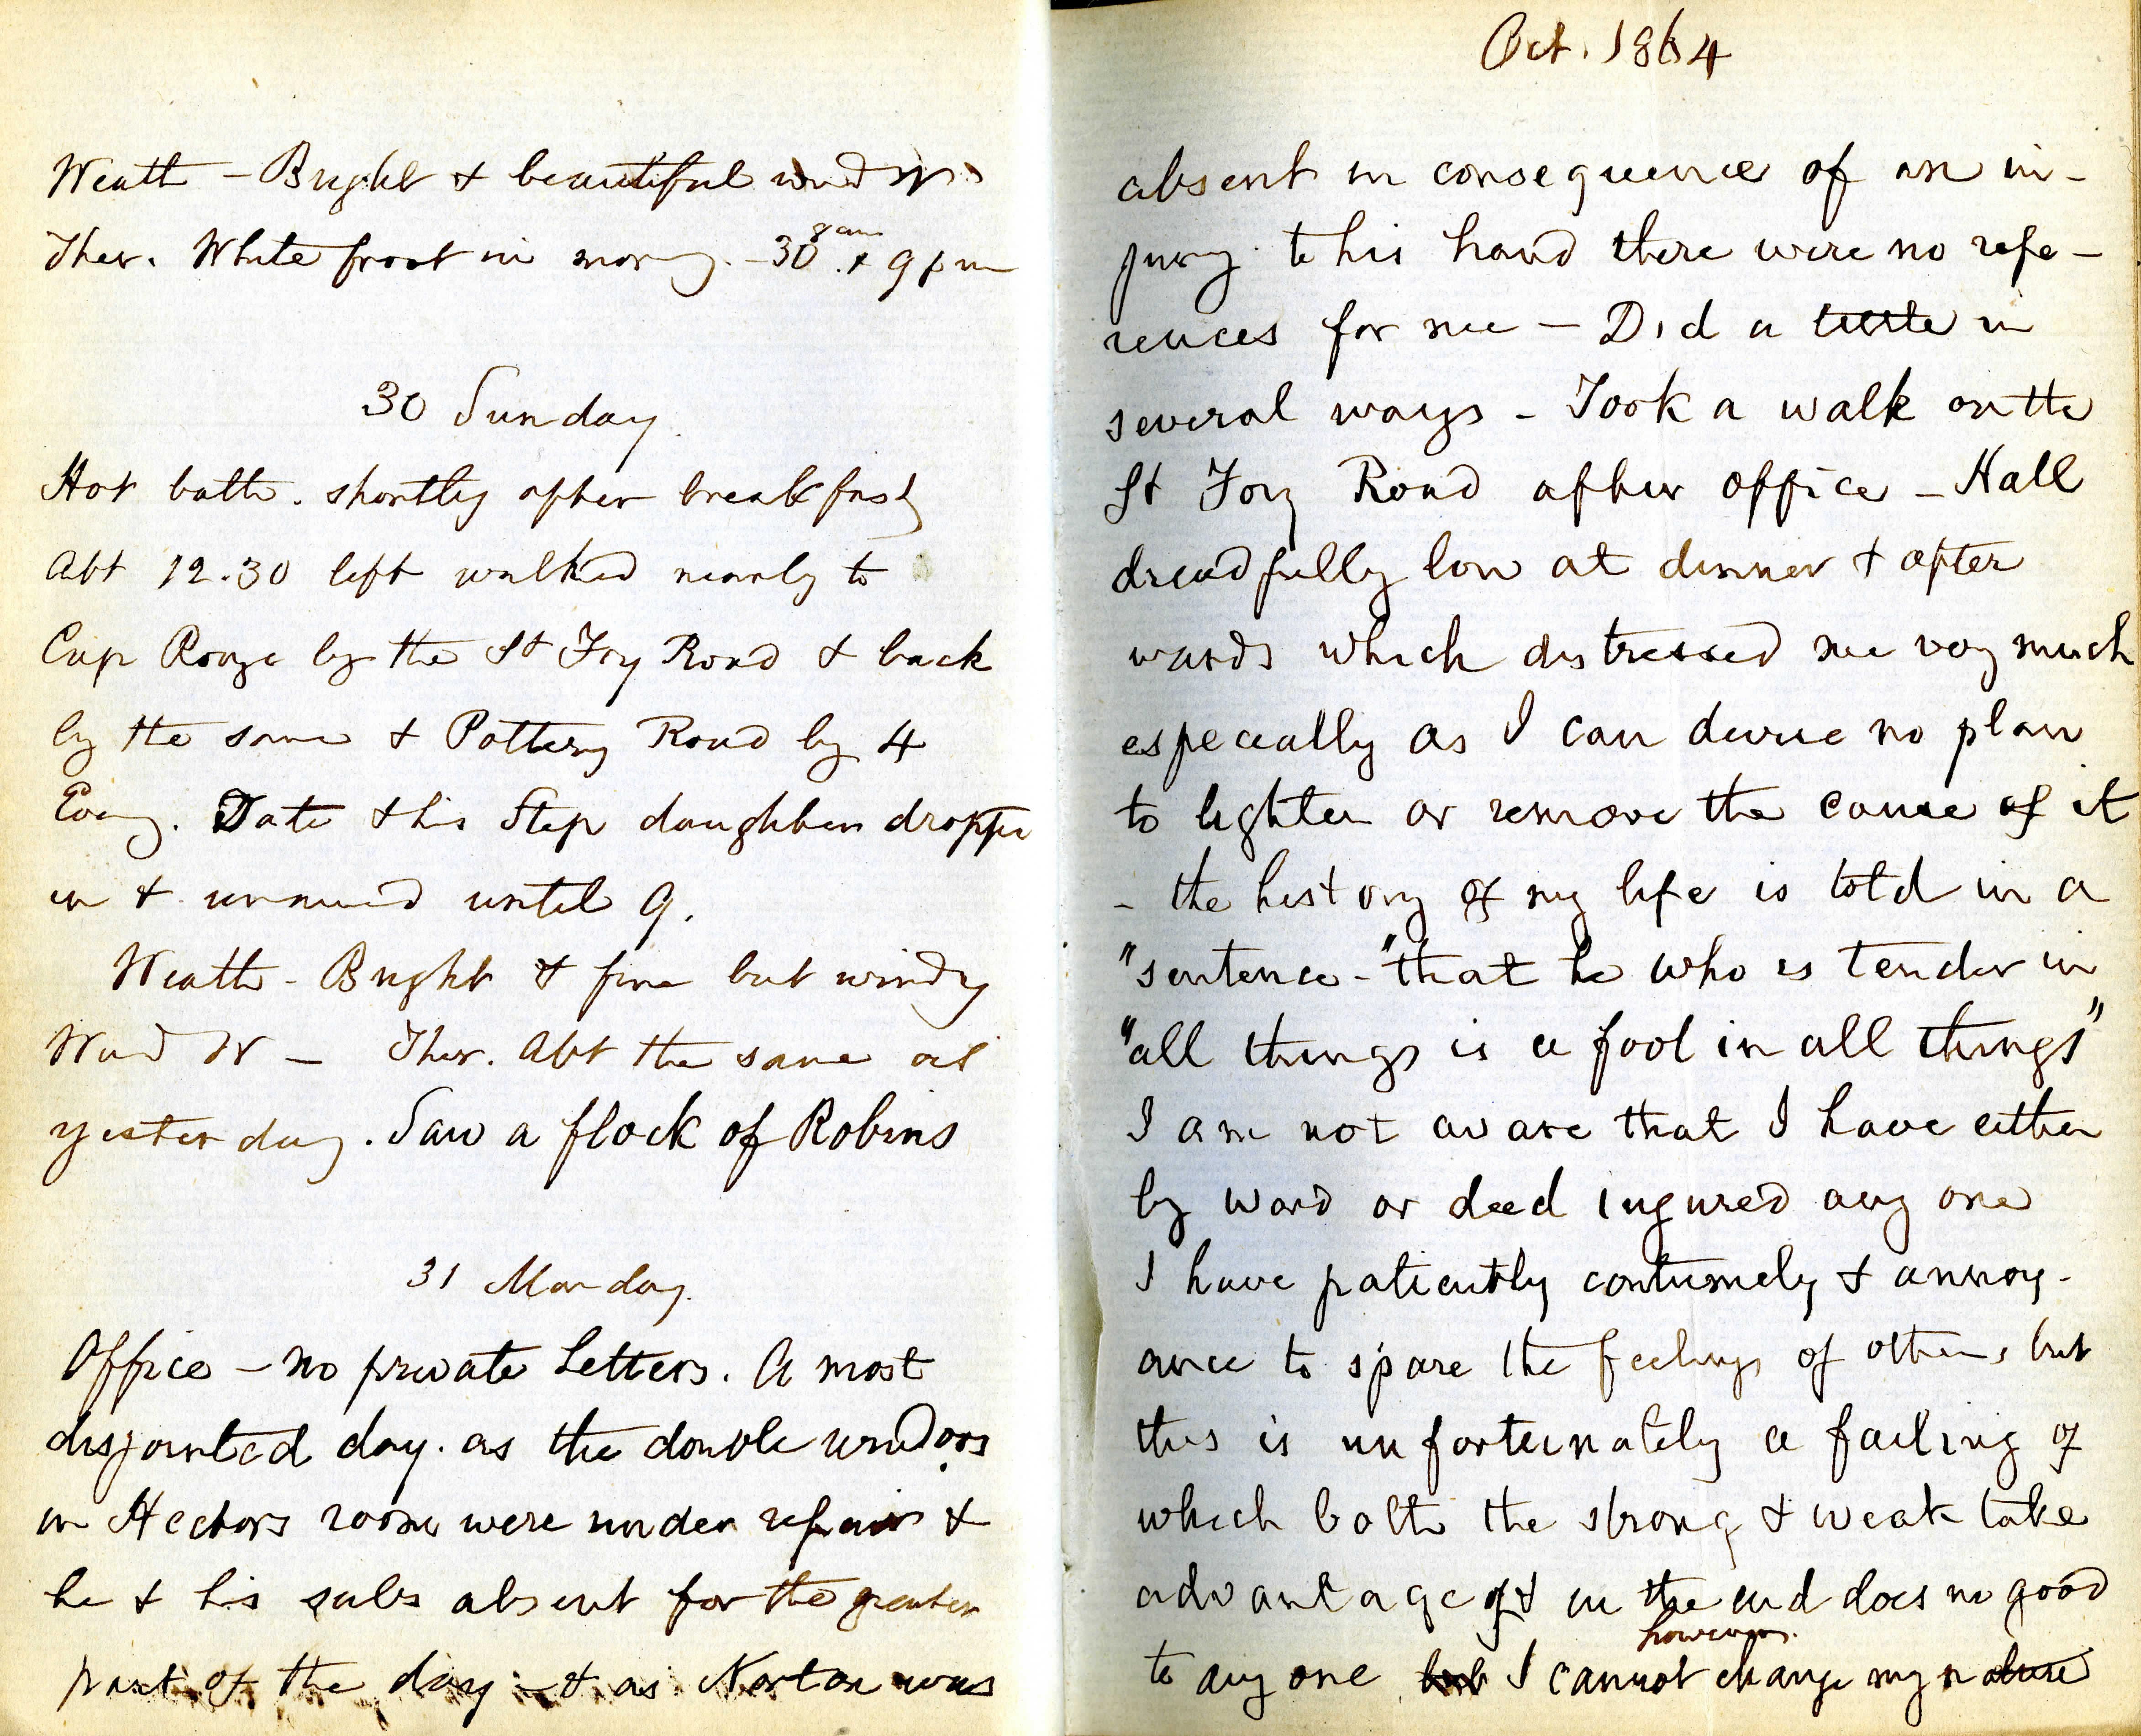 Weath - Bright & beautiful wind
Ther. White frost in morng. - 30 8 am & 9 pm
30 Sunday.
Hot bath. shortly after breakfast
Abt 12.30 left walked nearly to
Cap Rouge by the St Foy Road & back
by the same & Pottery Road by 4
Eveng. Date & his Step daughter dropped
in & remained until 9.
Weath - Bright & fine but windy
Wind W - Ther. Abt the same as
yesterday. Saw a flock of Robins
31 Monday.
Office - no private Letters. A most
disjointed day. as the double windows
in Hectors room were under repair &
he & his subs absent for the greater
part of the day - & as Norton was
Oct. 1864
absent in consequence of an in-
jury to his hand there were no refe-
rences for me - Did a little in
several ways - Took a walk on the
St Foy Road after office - Hall
dreadfully low at dinner & after
wards which distressed me very much
especially as I can devise no plan
to lighten or remove the cause of it
- the history of my life is told in a
"sentence -" that he who is tender in
"all things is a fool in all things"
I am not aware that I have either
by word or deed injured any one
I have patiently contumely & annoy-
ance to spare the feelings of others but
this is unfortunately a failing of
which both the strong & weak take
advantage of & in the end does no good
to any one but I cannot however change my nature